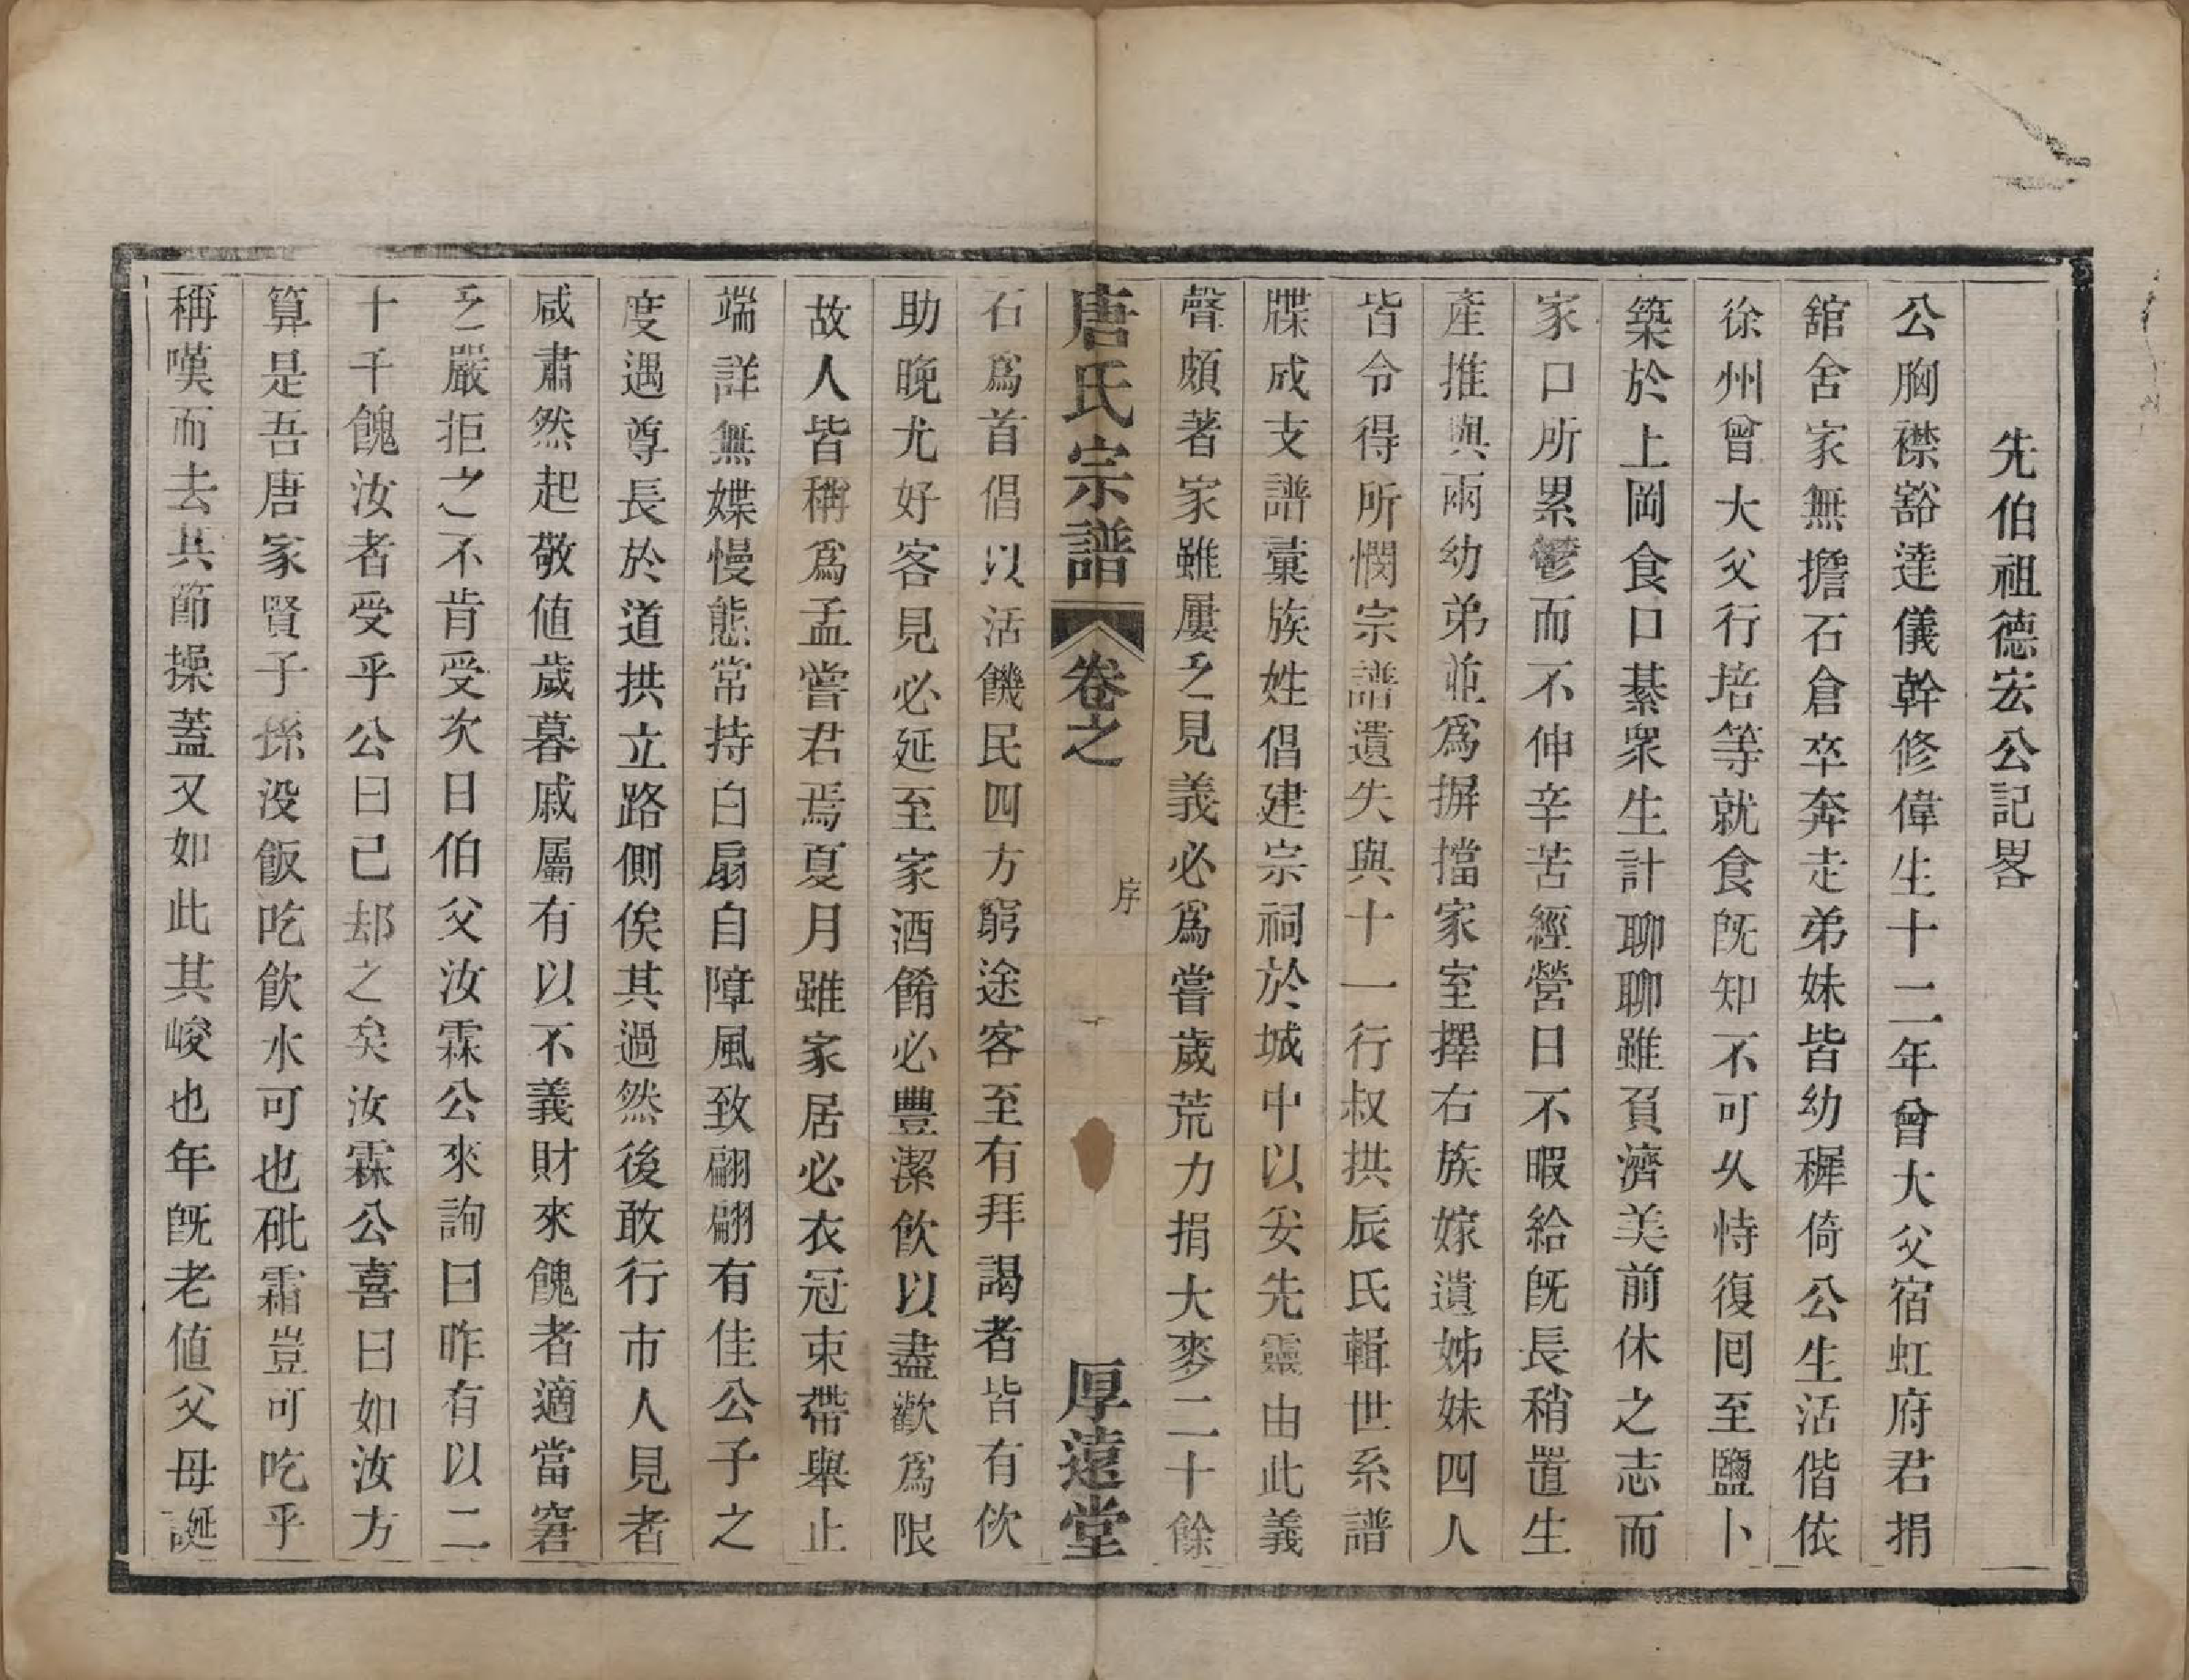 先伯祖德宏公記畧
公胸襟豁達儀幹修偉生十二年曾大父宿虹府君捐
舘舍家無擔石倉卒奔走弟妹皆幼穉倚公生活偕依
徐州曾大父行培等就食旣知不可久恃復囘至鹽卜
築於上岡食口綦衆生計聊聊雖負濟美前休之志而
家口所累鬱而不伸辛苦經營日不暇給旣長稍置生
產推與兩幼弟並爲摒擋家室擇右族嫁遺姊妹四人
皆令得所憫宗譜遺失與十一行叔拱辰氏輯世系譜
牒成支譜彙族姓倡建宗祠於城中以妥先靈由此義
聲頗著家雖屢乏見義必爲嘗歲荒力捐大麥二十餘
唐氏宗譜 卷之 序 一 厚遠堂
石爲首倡以活饑民四方窮途客至有拜謁者皆有佽
助晚尤好客見必延至家酒餚必豐潔飲以盡歡爲限
故人皆稱爲孟嘗君焉夏月雖家居必衣冠束帶舉止
端詳無媟慢態常持白扇自障風致翩翩有佳公子之
度遇尊長於道拱立路側俟其過然後敢行市人見者
咸肅然起敬値歲暮戚屬有以不義財來餽者適當窘
乏嚴拒之不肯受次日伯父汝霖公來詢曰昨有以二
十千餽汝者受乎公曰已却之矣汝霖公喜曰如汝方
算是吾唐家賢子孫没飯吃飲水可也砒霜豈可吃乎
稱嘆而去其節操蓋又如此其峻也年旣老値父母誕